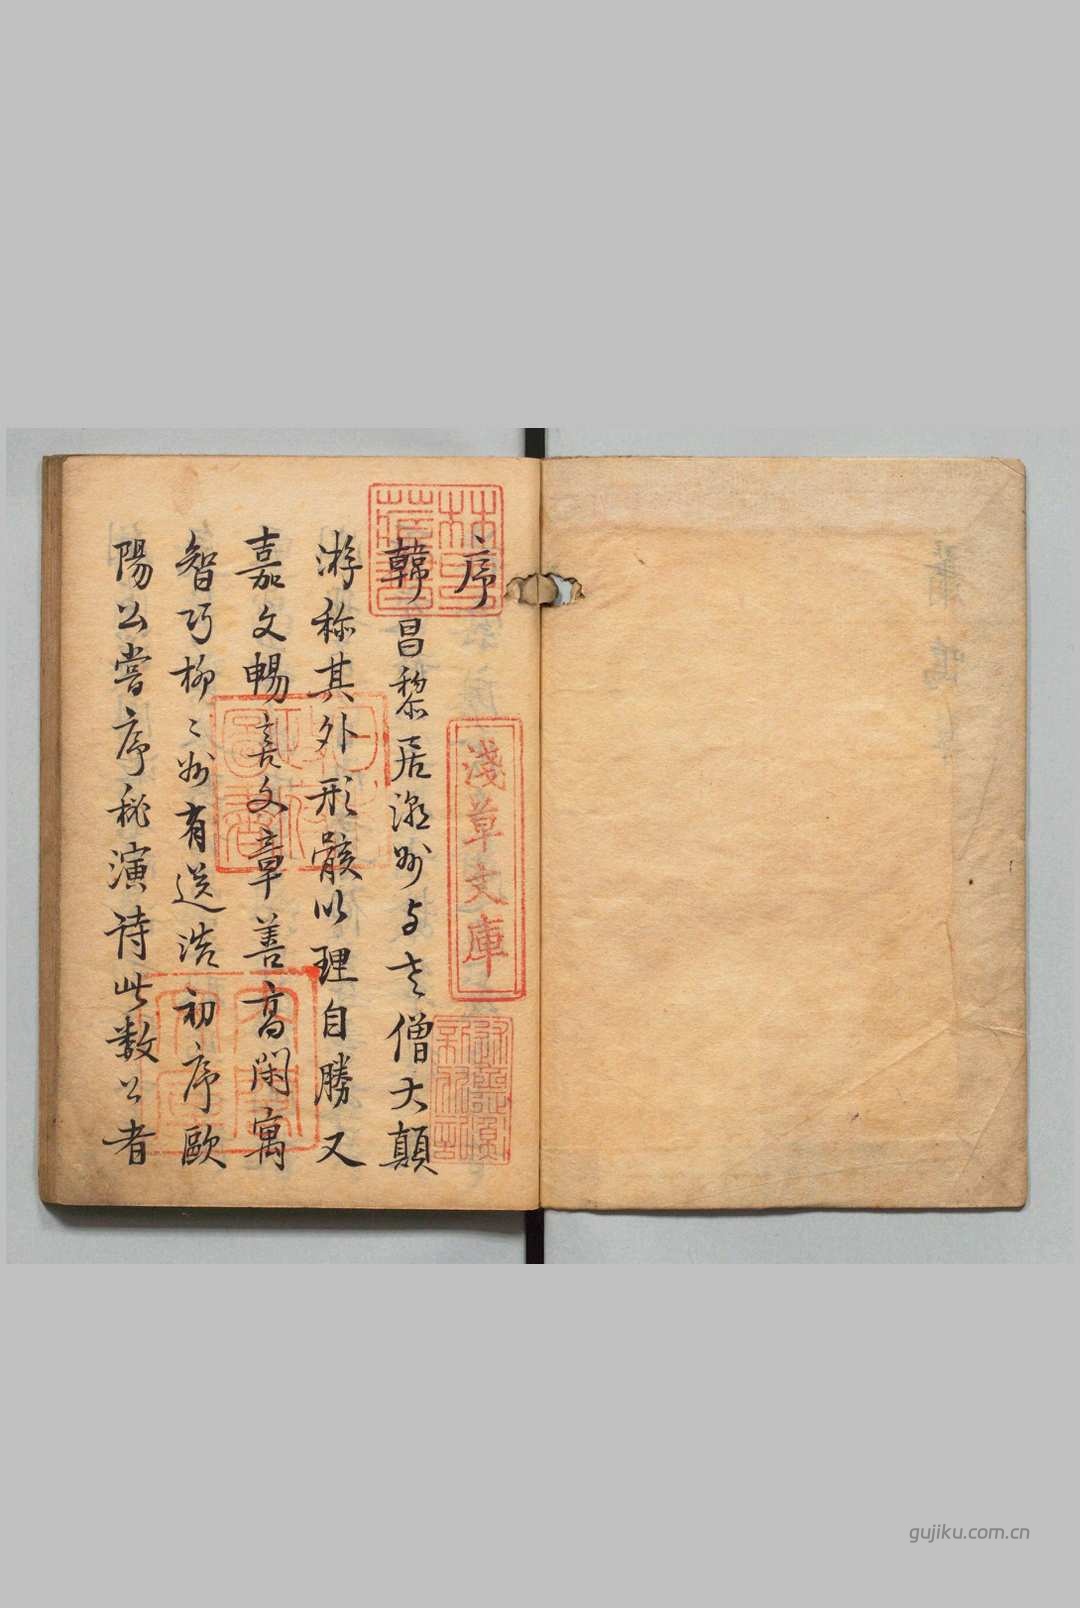 序
韓昌黎居潮州与老僧大顛
游称其外形骸以理自勝又
嘉文暢喜文章善高閑寓
智巧柳〻州有送浩初序歐
陽公嘗序秘演詩此數公者
淺草文庫
林氏藏書
日本政府圖書
gujiku.com.cn